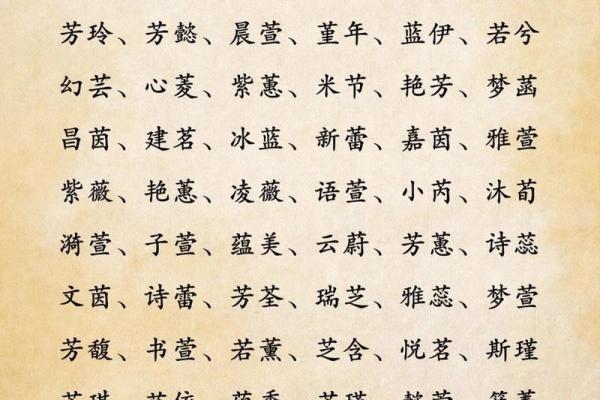 芳玲、芳懿、晨萱、堇年、蓝伊、若兮
幻芸、心菱、紫蕙、米节、艳芳、梦菡
昌茵、建茗、冰蓝、新蕾、嘉茵、雅萱
紫薇、艳蕙、凌薇、语萱、小芮、沐荀
漪萱、子萱、蕴美、云蔚、芳蕙、诗蕊
文茵、诗蕾、芳荃、瑞芝、雅蕊、梦萱
芳馥、书萱、若薰、芝含、悦茗、斯瑾